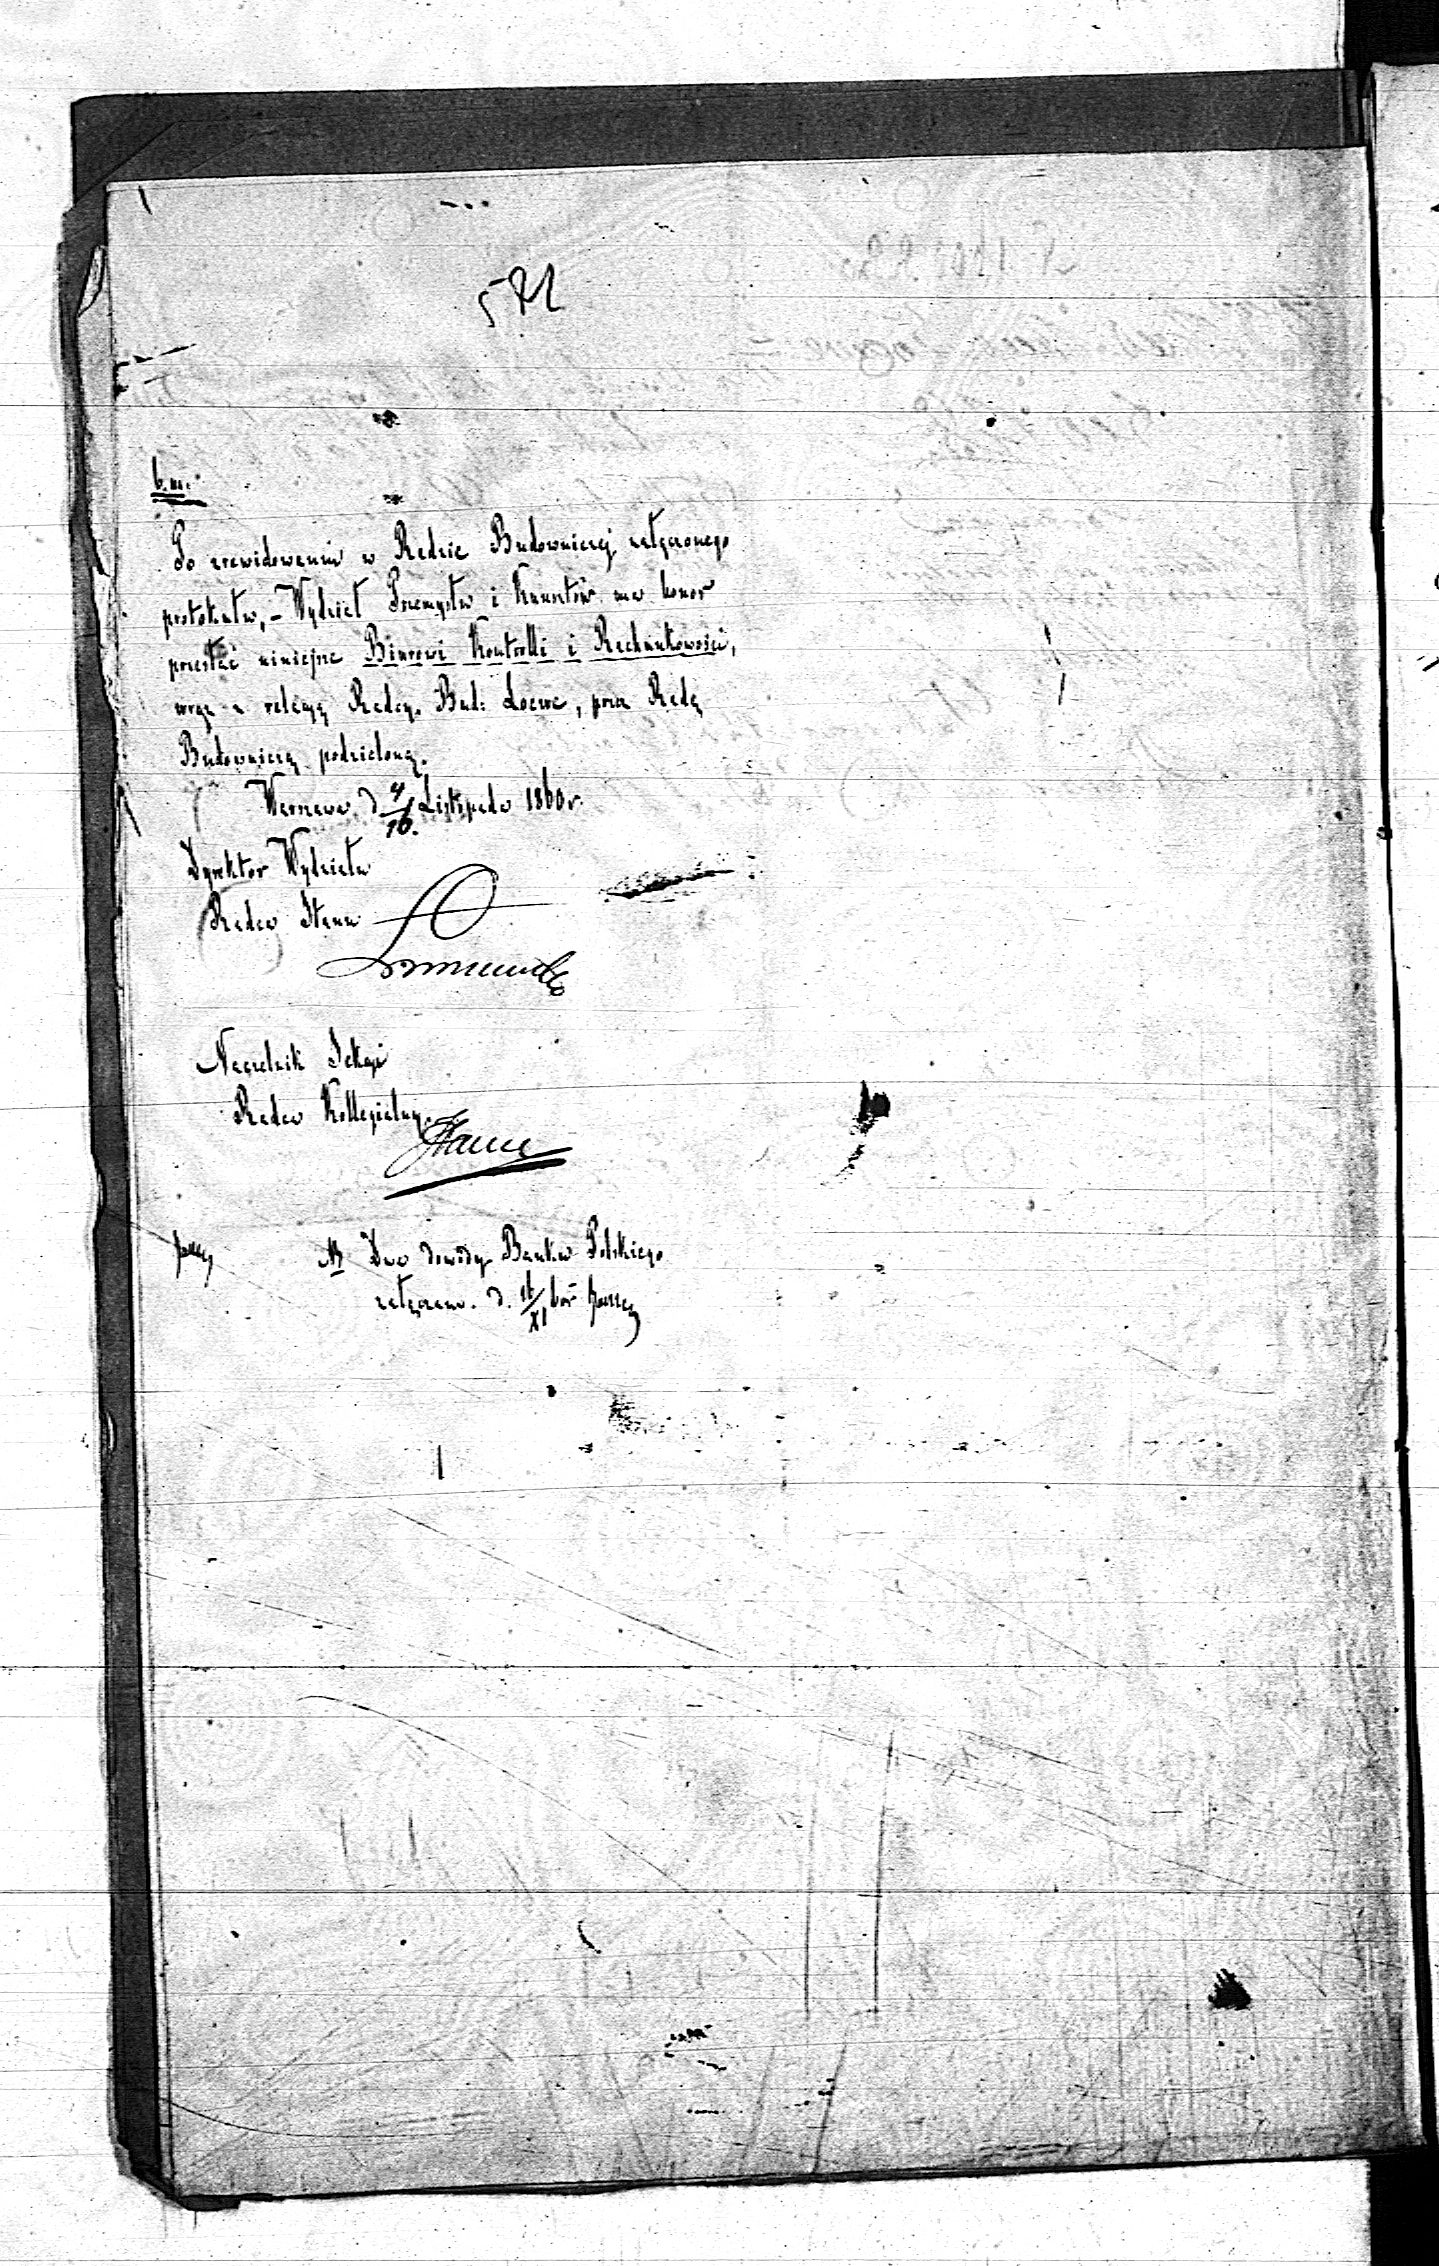 521
b. m.
Po zrewidowaniu w Radzie Budowniczej załączonego
protokułu, – Wydział Przemysłu i Kunsztów ma honor
przesłać niniejsze Biurowi Kontrolli i Rachunkowości,
wraz z relacyą Radcy Bud: Loewe, przez Radę
Budowniczą podzieloną.
Warszawa d 4/16. Listopada 1860 r.
Dyrektor Wydziału
Radca Stanu
Naczelnik Sekcyi
Radca Kollegialny
NB Dwa dowody Banku Polskiego
załączam. d. /XI